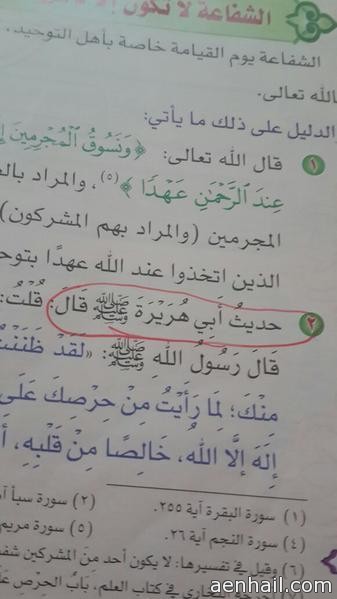 الشفاعة لا تكون إلا
الشفاعة يوم القيامة خاصة بأهل التوحيد،
بالله تعالى.
الدليل على ذلك ما يأتي:
١ قال الله تعالى: ﴿وَنَسُوقُ الْمُجْرِمِينَ
عِندَ الرَّحْمَٰنِ عَهْدًا﴾(٥)، والمراد
المجرمين (والمراد بهم المشركون)
الذين اتخذوا عند الله عهدًا
٢ حديثُ أَبِي هُرَيْرَةَ ﷺ قَالَ: قُلْتُ:
قَالَ رَسُولُ اللهِ ﷺ: «لَقَدْ ظَنَنْتُ
مِنْكَ؛ لِمَا رَأَيْتُ مِنْ حِرْصِكَ عَلَى
إِلَهَ إِلَّا اللهُ، خَالِصًا مِنْ قَلْبِهِ،
(١) سورة البقرة آية ٢٥٥.
(٢) سورة سبأ
(٤) سورة النجم آية ٢٦.
(٥) سورة مريم
(٦) وقيل في تفسيرها: لا يكون أحد من المشركين
البخاري في كتاب العلم، بَابُ الحِرصِ
aenhail.com